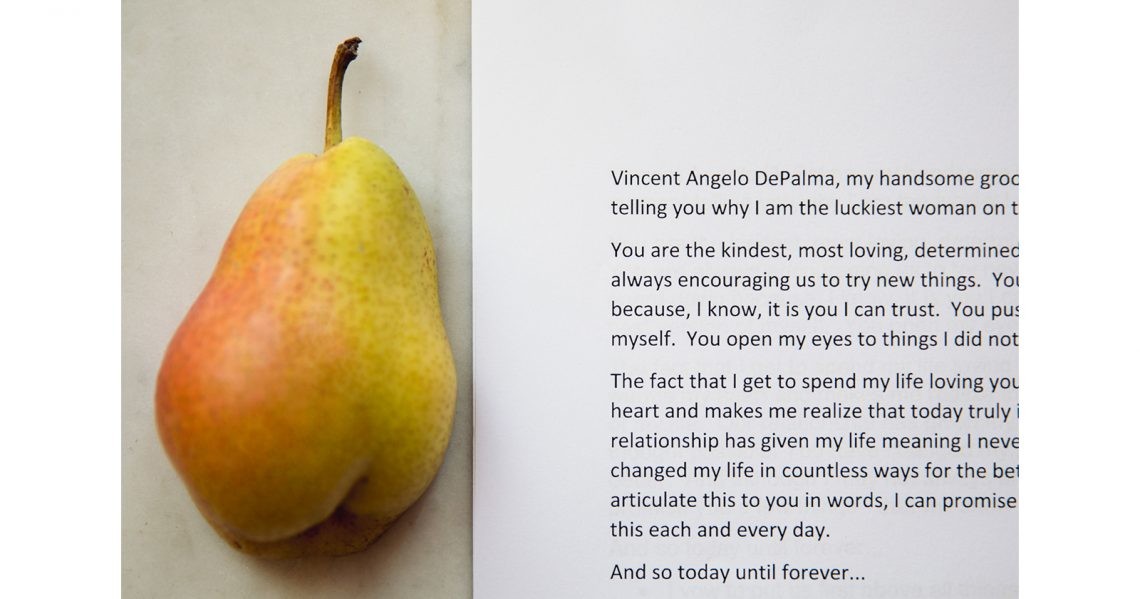 Vincent Angelo DePalma, my handsome groo
telling you why I am the luckiest woman on t
You are the kindest, most loving, determined
always encouraging us to try new things.  You
because, I know, it is you I can trust.  You pus
myself.  You open my eyes to things I did not
The fact that I get to spend my life loving you
heart and makes me realize that today truly i
relationship has given my life meaning I neve
changed my life in countless ways for the bet
articulate this to you in words, I can promise
this each and every day.
And so today until forever...